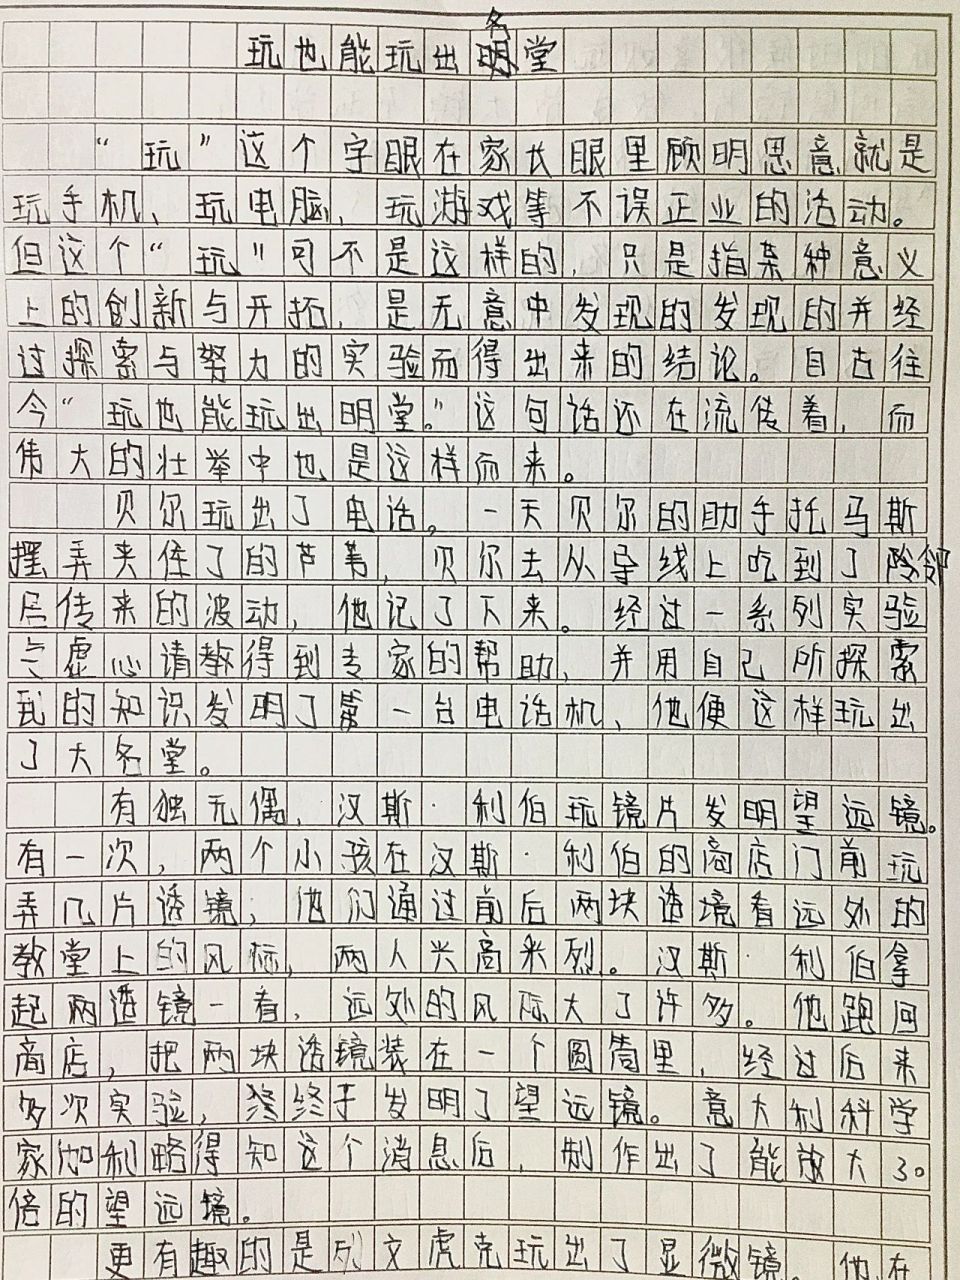 玩也能玩出名堂
“玩”这个字眼在家长眼里顾明思意就是
玩手机、玩电脑、玩游戏等不误正业的活动。
但这个“玩”可不是这样的，只是指某种意义
上的创新与开拓，是无意中发现的发现的并经
过探索与努力的实验而得出来的结论。自古往
今“玩也能玩出明堂。”这句话还在流传着，而
伟大的壮举中也是这样而来。
贝尔玩出了电话。一天贝尔的助手托马斯
摆弄夹住了的芦苇，贝尔去从导线上吃到了邻
居传来的波动，他记了下来。经过一系列实验
与虚心请教得到专家的帮助，并用自己所探索
到的知识发明了第一台电话机，他便这样玩出
了大名堂。
有独无偶，汉斯·利伯玩镜片发明望远镜。
有一次，两个小孩在汉斯·利伯的商店门前玩
弄几片透镜，他们通过前后两块透境看远处的
教堂上的风标，两人兴高采烈。汉斯·利伯拿
起两透镜一看，远处的风标大了许多。他跑回
商店，把两块透镜装在一个圆筒里，经过后来
多次实验，终于发明了望远镜。意大利科学
家伽利略得知这个消息后，制作出了能放大30
倍的望远镜。
更有趣的是列文虎克玩出了显微镜。他在